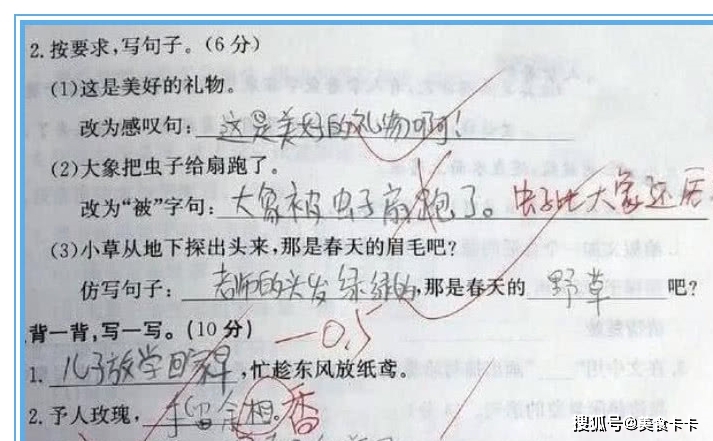 2.按要求,写句子。(6分)
(1)这是美好的礼物。
改为感叹句：这是美好的礼物啊！
(2)大象把虫子给扇跑了。
改为“被”字句：大象被虫子扇跑了。虫子比大象还厉
(3)小草从地下探出头来,那是春天的眉毛吧?
仿写句子：老师的头发绿绿的,那是春天的 野草 吧?
背一背,写一写。(10分) -0.5
1. 儿子放学回家早,忙趁东风放纸鸢。
2.予人玫瑰, 手留余相。香
搜狐号@美食卡卡